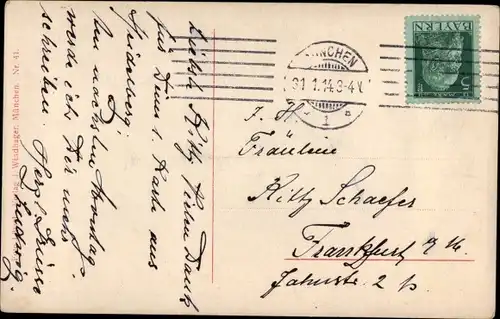 Liebste Kitty. Vielen Dank
für Deine l. Karte aus
Heidelberg.
Am nächsten Montag
werde ich Dir mehr
schreiben. Herzl. Grüsse
Ludwig.
Windhager, München. Nr. 41.
MÜNCHEN
31.1.14.3-4V.
1
BAYERN
5
Fräulein
Kitty Schaefer
Frankfurt a/M.
Jahnstr. 2 p.